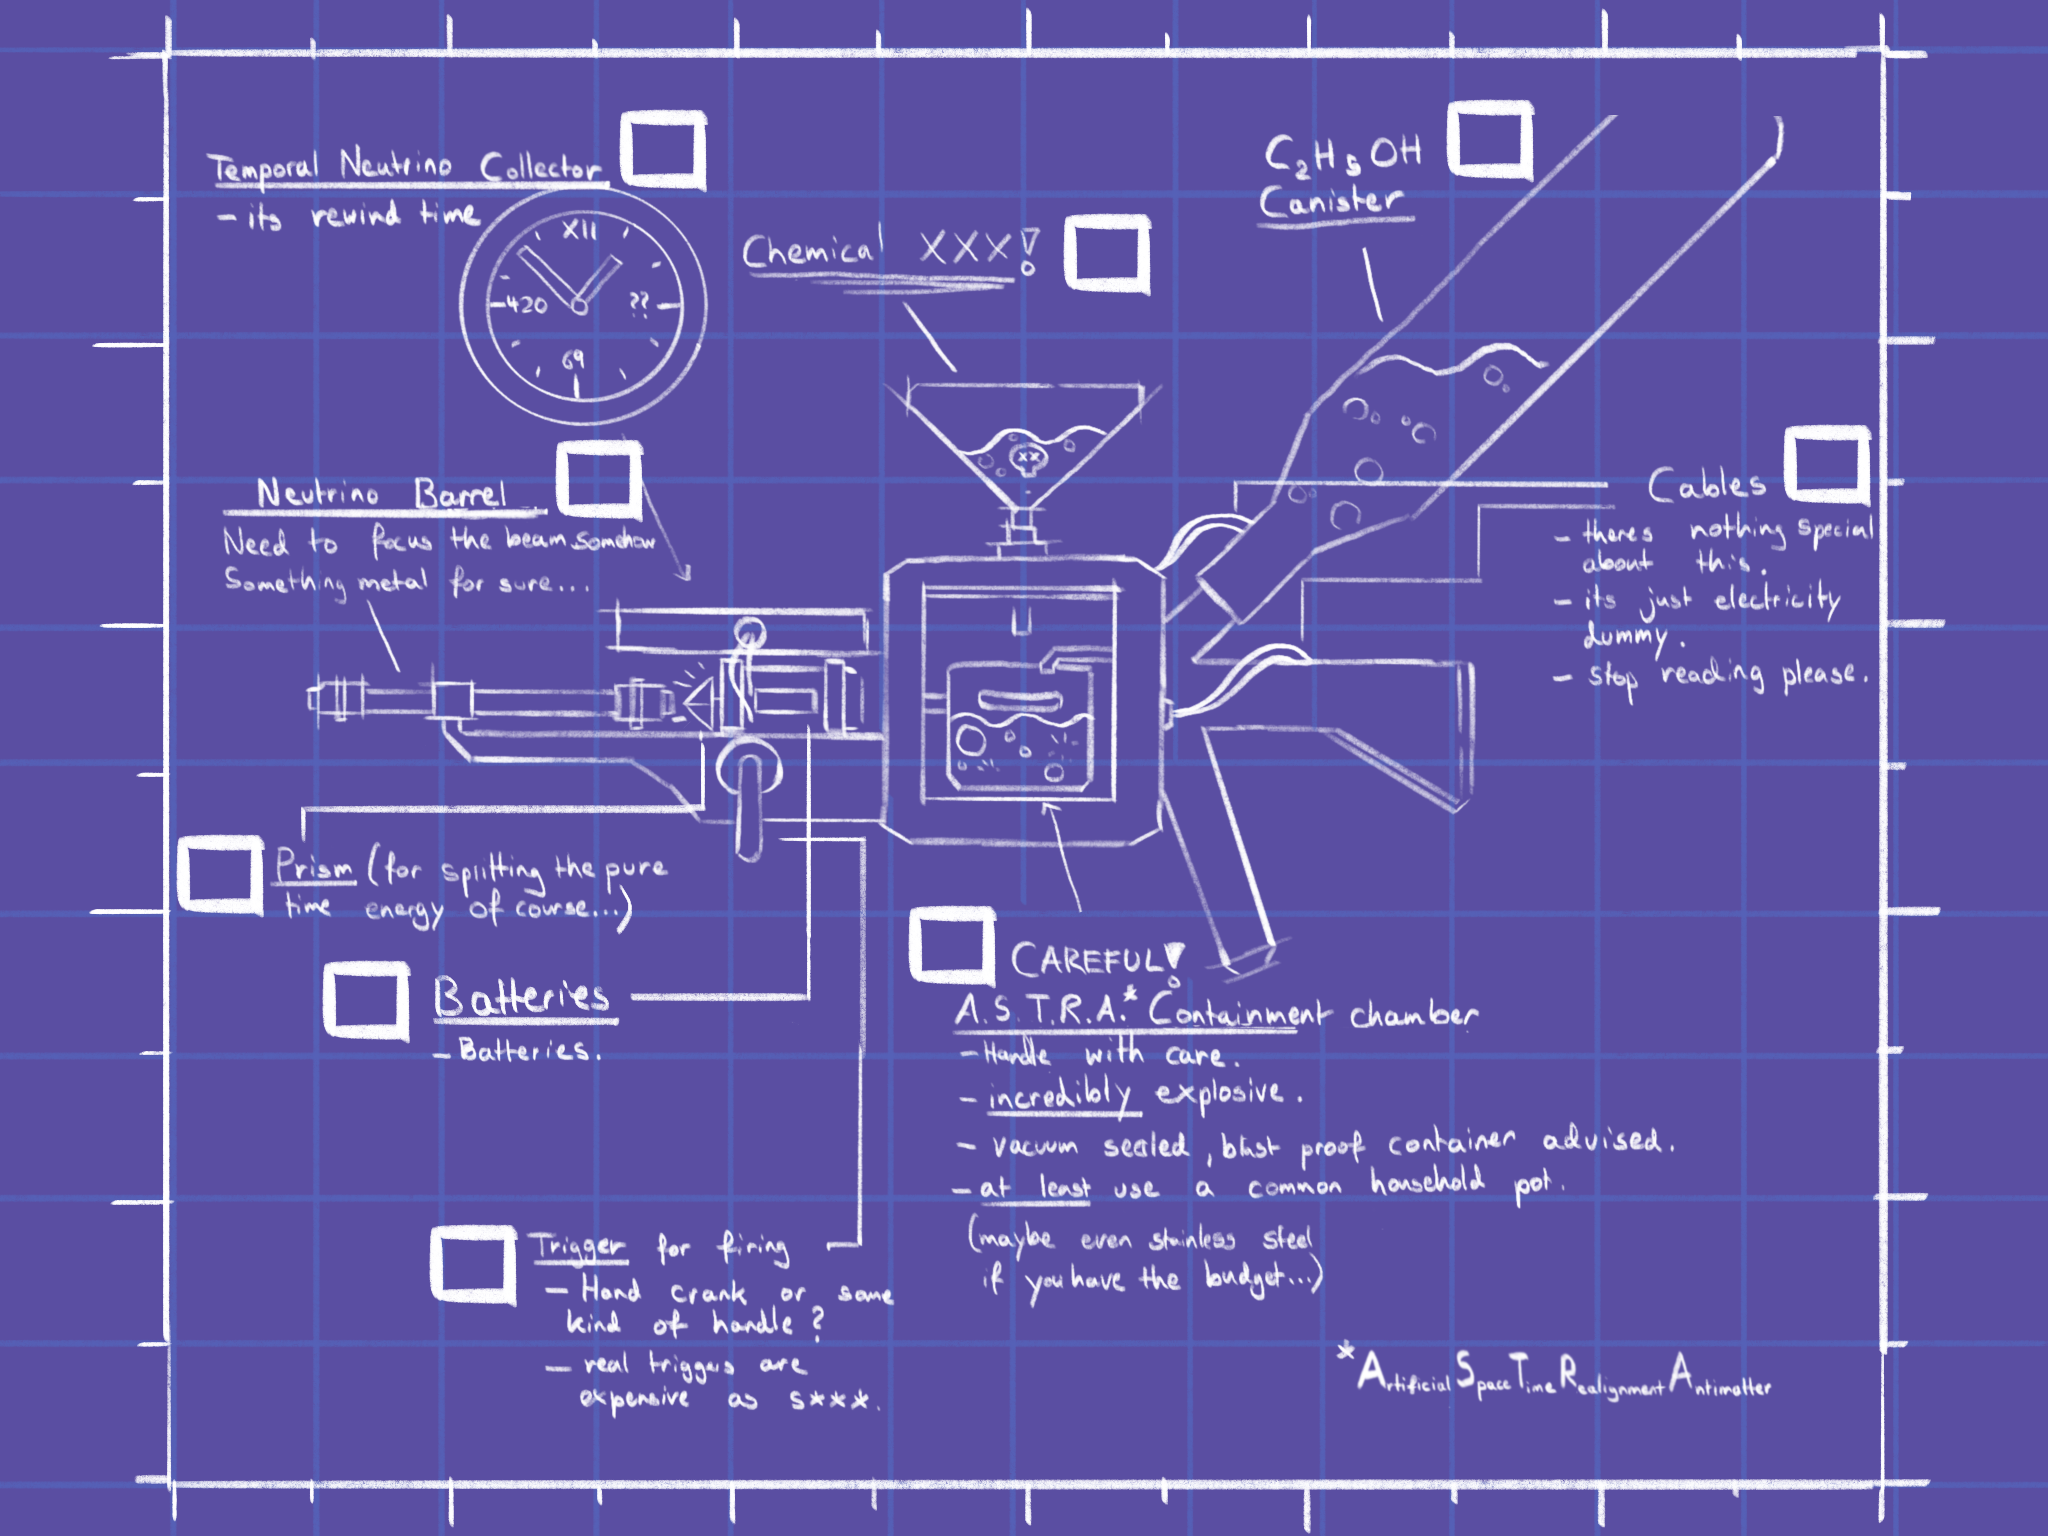 Temporal Neutrino Collector
- its rewind time
XII
420
??
69
Chemical XXX!
C₂H₅OH
Canister
Neutrino Barrel
Need to focus the beam somehow
Something metal for sure...
Cables
- theres nothing special
about this.
- its just electricity
dummy.
- stop reading please.
xx
Prism (for splitting the pure
time energy of course...)
Batteries
- Batteries.
CAREFUL!
A.S.T.R.A.* Containment chamber
- Handle with care.
- incredibly explosive.
- vacuum sealed, blast proof container advised.
- at least use a common household pot.
(maybe even stainless steel
if you have the budget...)
Trigger for firing
- Hand crank or some
kind of handle?
- real triggers are
expensive as s***.
*Artificial Space Time Realignment Antimatter